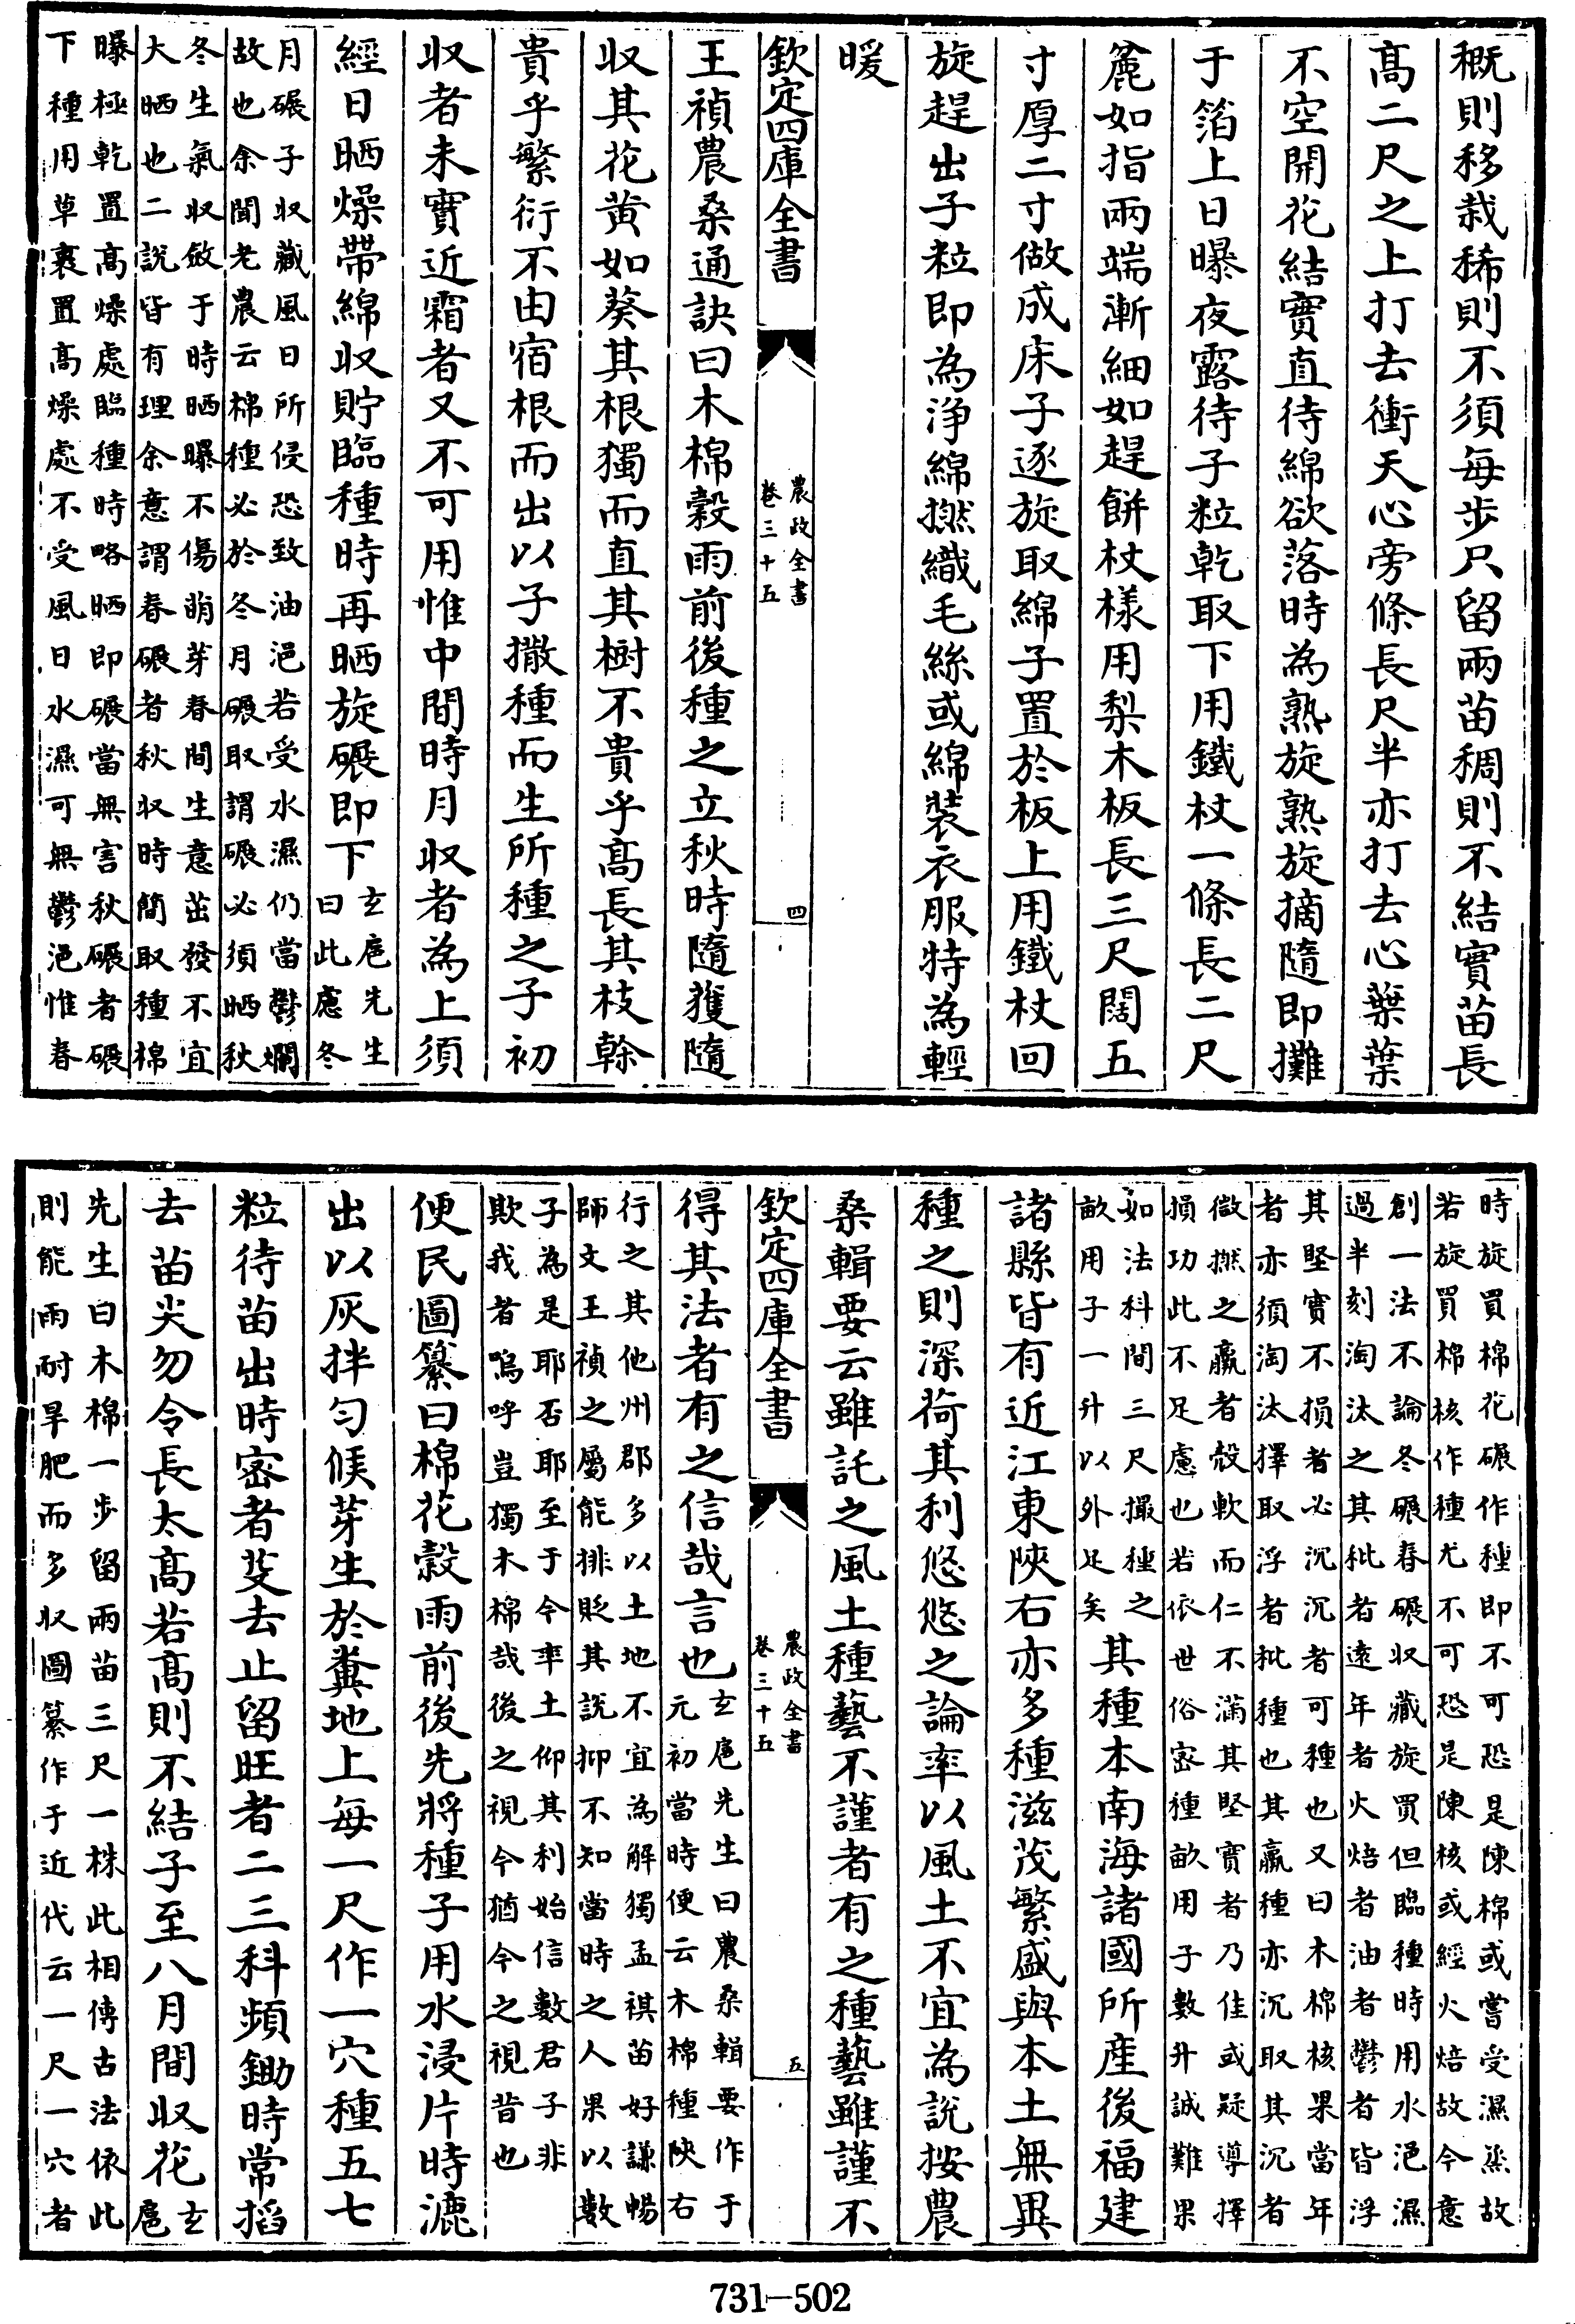 概則移栽稀則不須每步只留兩苗稠則不結實苗長
高二尺之上打去衝天心旁條長尺半亦打去心葉葉
不空開花結實直待綿欲落時為熟旋熟旋摘隨即攤
于箔上日曝夜露待子粒乾取下用鐵杖一條長二尺
麄如指兩端漸細如趕餅杖樣用梨木板長三尺闊五
寸厚二寸做成床子逐旋取綿子置於板上用鐵杖回
旋趕出子粒即為淨綿撚織毛絲或綿裝衣服特為輕
暖
欽定四庫全書
農政全書
卷三十五
四
王禎農桑通訣曰木棉穀雨前後種之立秋時隨獲隨
収其花黃如葵其根獨而直其樹不貴乎高長其枝幹
貴乎繁衍不由宿根而出以子撒種而生所種之子初
収者未實近霜者又不可用惟中間時月収者為上須
經日晒燥帶綿収貯臨種時再晒旋碾即下
玄扈先生
曰此慮冬
月碾子収藏風日所侵恐致油浥若受水濕仍當鬱爛
故也余聞老農云棉種必於冬月碾取謂碾必須晒秋
冬生氣収斂于時晒曝不傷萌芽春間生意茁發不宜
大晒也二說皆有理余意謂春碾者秋収時簡取種棉
曝極乾置高燥處臨種時略晒即碾當無害秋碾者碾
下種用草裹置高燥處不受風日水濕可無鬱浥惟春
時旋買棉花碾作種即不可恐是陳棉或嘗受濕蒸故
若旋買棉核作種尤不可恐是陳核或經火焙故今意
創一法不論冬碾春碾収藏旋買但臨種時用水浥濕
過半刻淘汰之其秕者遠年者火焙者油者鬱者皆浮
其堅實不損者必沉沉者可種也又曰木棉核果當年
者亦須淘汰擇取浮者秕種也其羸種亦沉取其沉者
微撚之羸者殼軟而仁不滿其堅實者乃佳或疑導擇
損功此不足慮也若依世俗密種畝用子數升誠難果
如法科間三尺撮種之
畝用子一升以外足矣
其種本南海諸國所產後福建
諸縣皆有近江東陝右亦多種滋茂繁盛與本土無異
種之則深荷其利悠悠之論率以風土不宜為說按農
桑輯要云雖託之風土種藝不謹者有之種藝雖謹不
欽定四庫全書
農政全書
卷三十五
五
得其法者有之信哉言也
玄扈先生曰農桑輯要作于
元初當時便云木棉種陝右
行之其他州郡多以土地不宜為解獨孟祺苗好謙暢
師文王禎之屬能排貶其說抑不知當時之人果以數
子為是耶否耶至于今率土仰其利始信數君子非
欺我者嗚呼豈獨木棉哉後之視今猶今之視昔也
便民圖纂曰棉花穀雨前後先將種子用水浸片時漉
出以灰拌勻候芽生於糞地上每一尺作一穴種五七
粒待苗出時密者芟去止留旺者二三科頻鋤時常掐
去苗尖勿令長太高若高則不結子至八月間収花
玄
扈
先生曰木棉一步留兩苗三尺一株此相傳古法依此
則能雨耐旱肥而多収圖纂作于近代云一尺一穴者
731—502